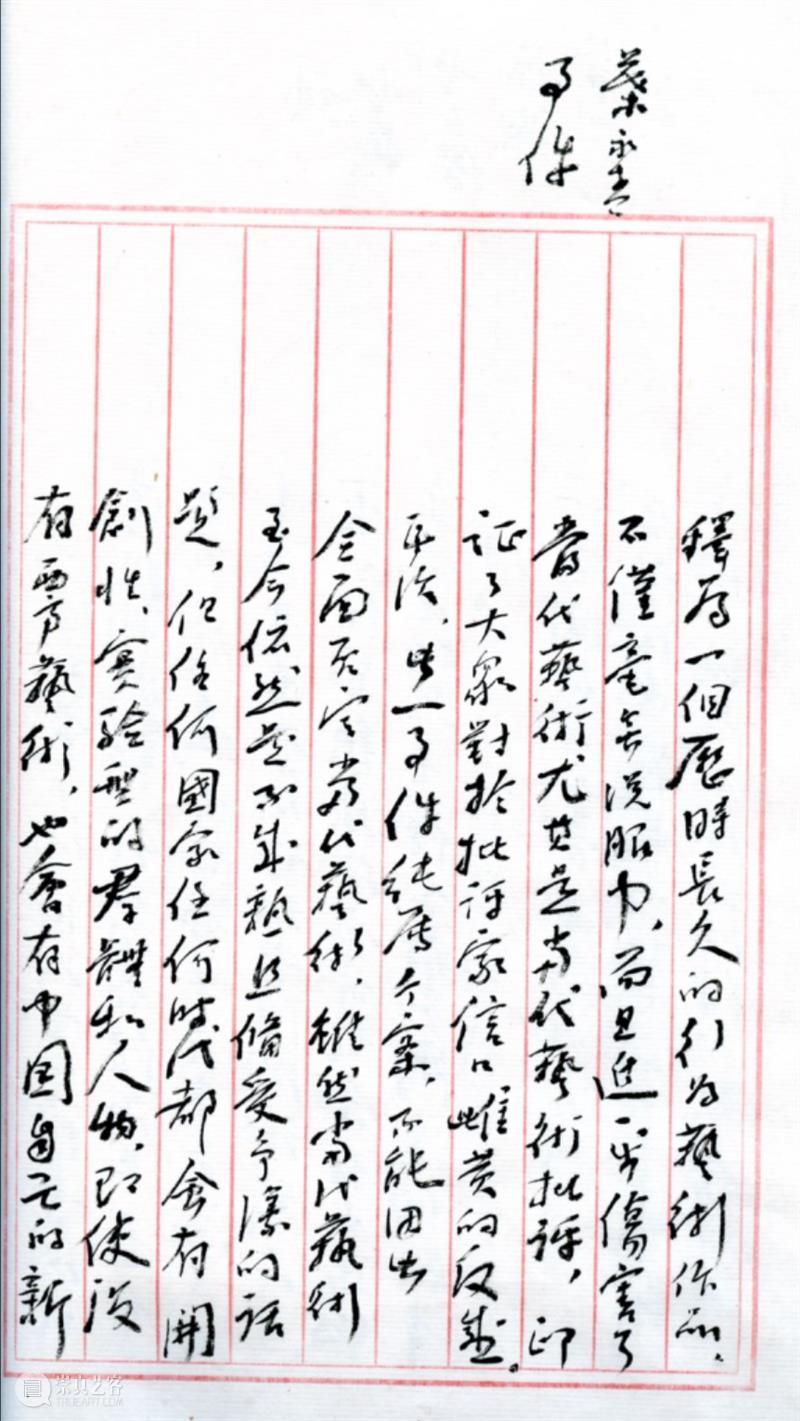 葉永青
事件
釋為一個歷時長久的行为藝術作品，
不僅毫無說服力，而且進一步傷害了
當代藝術尤其是當代藝術批評，印
証了大眾對於批評家信口雌黃的反感。
再次，此一事件純屬个案，不能因此
全面否定當代藝術，雖然當代藝術
至今依然是不成熟且備受争議的話
題，但任何國家任何時代都會有開
創性、實驗型的群體和人物，即使沒
有西方藝術，也會有中国自己的新
崇真艺客
TRUEART.COM